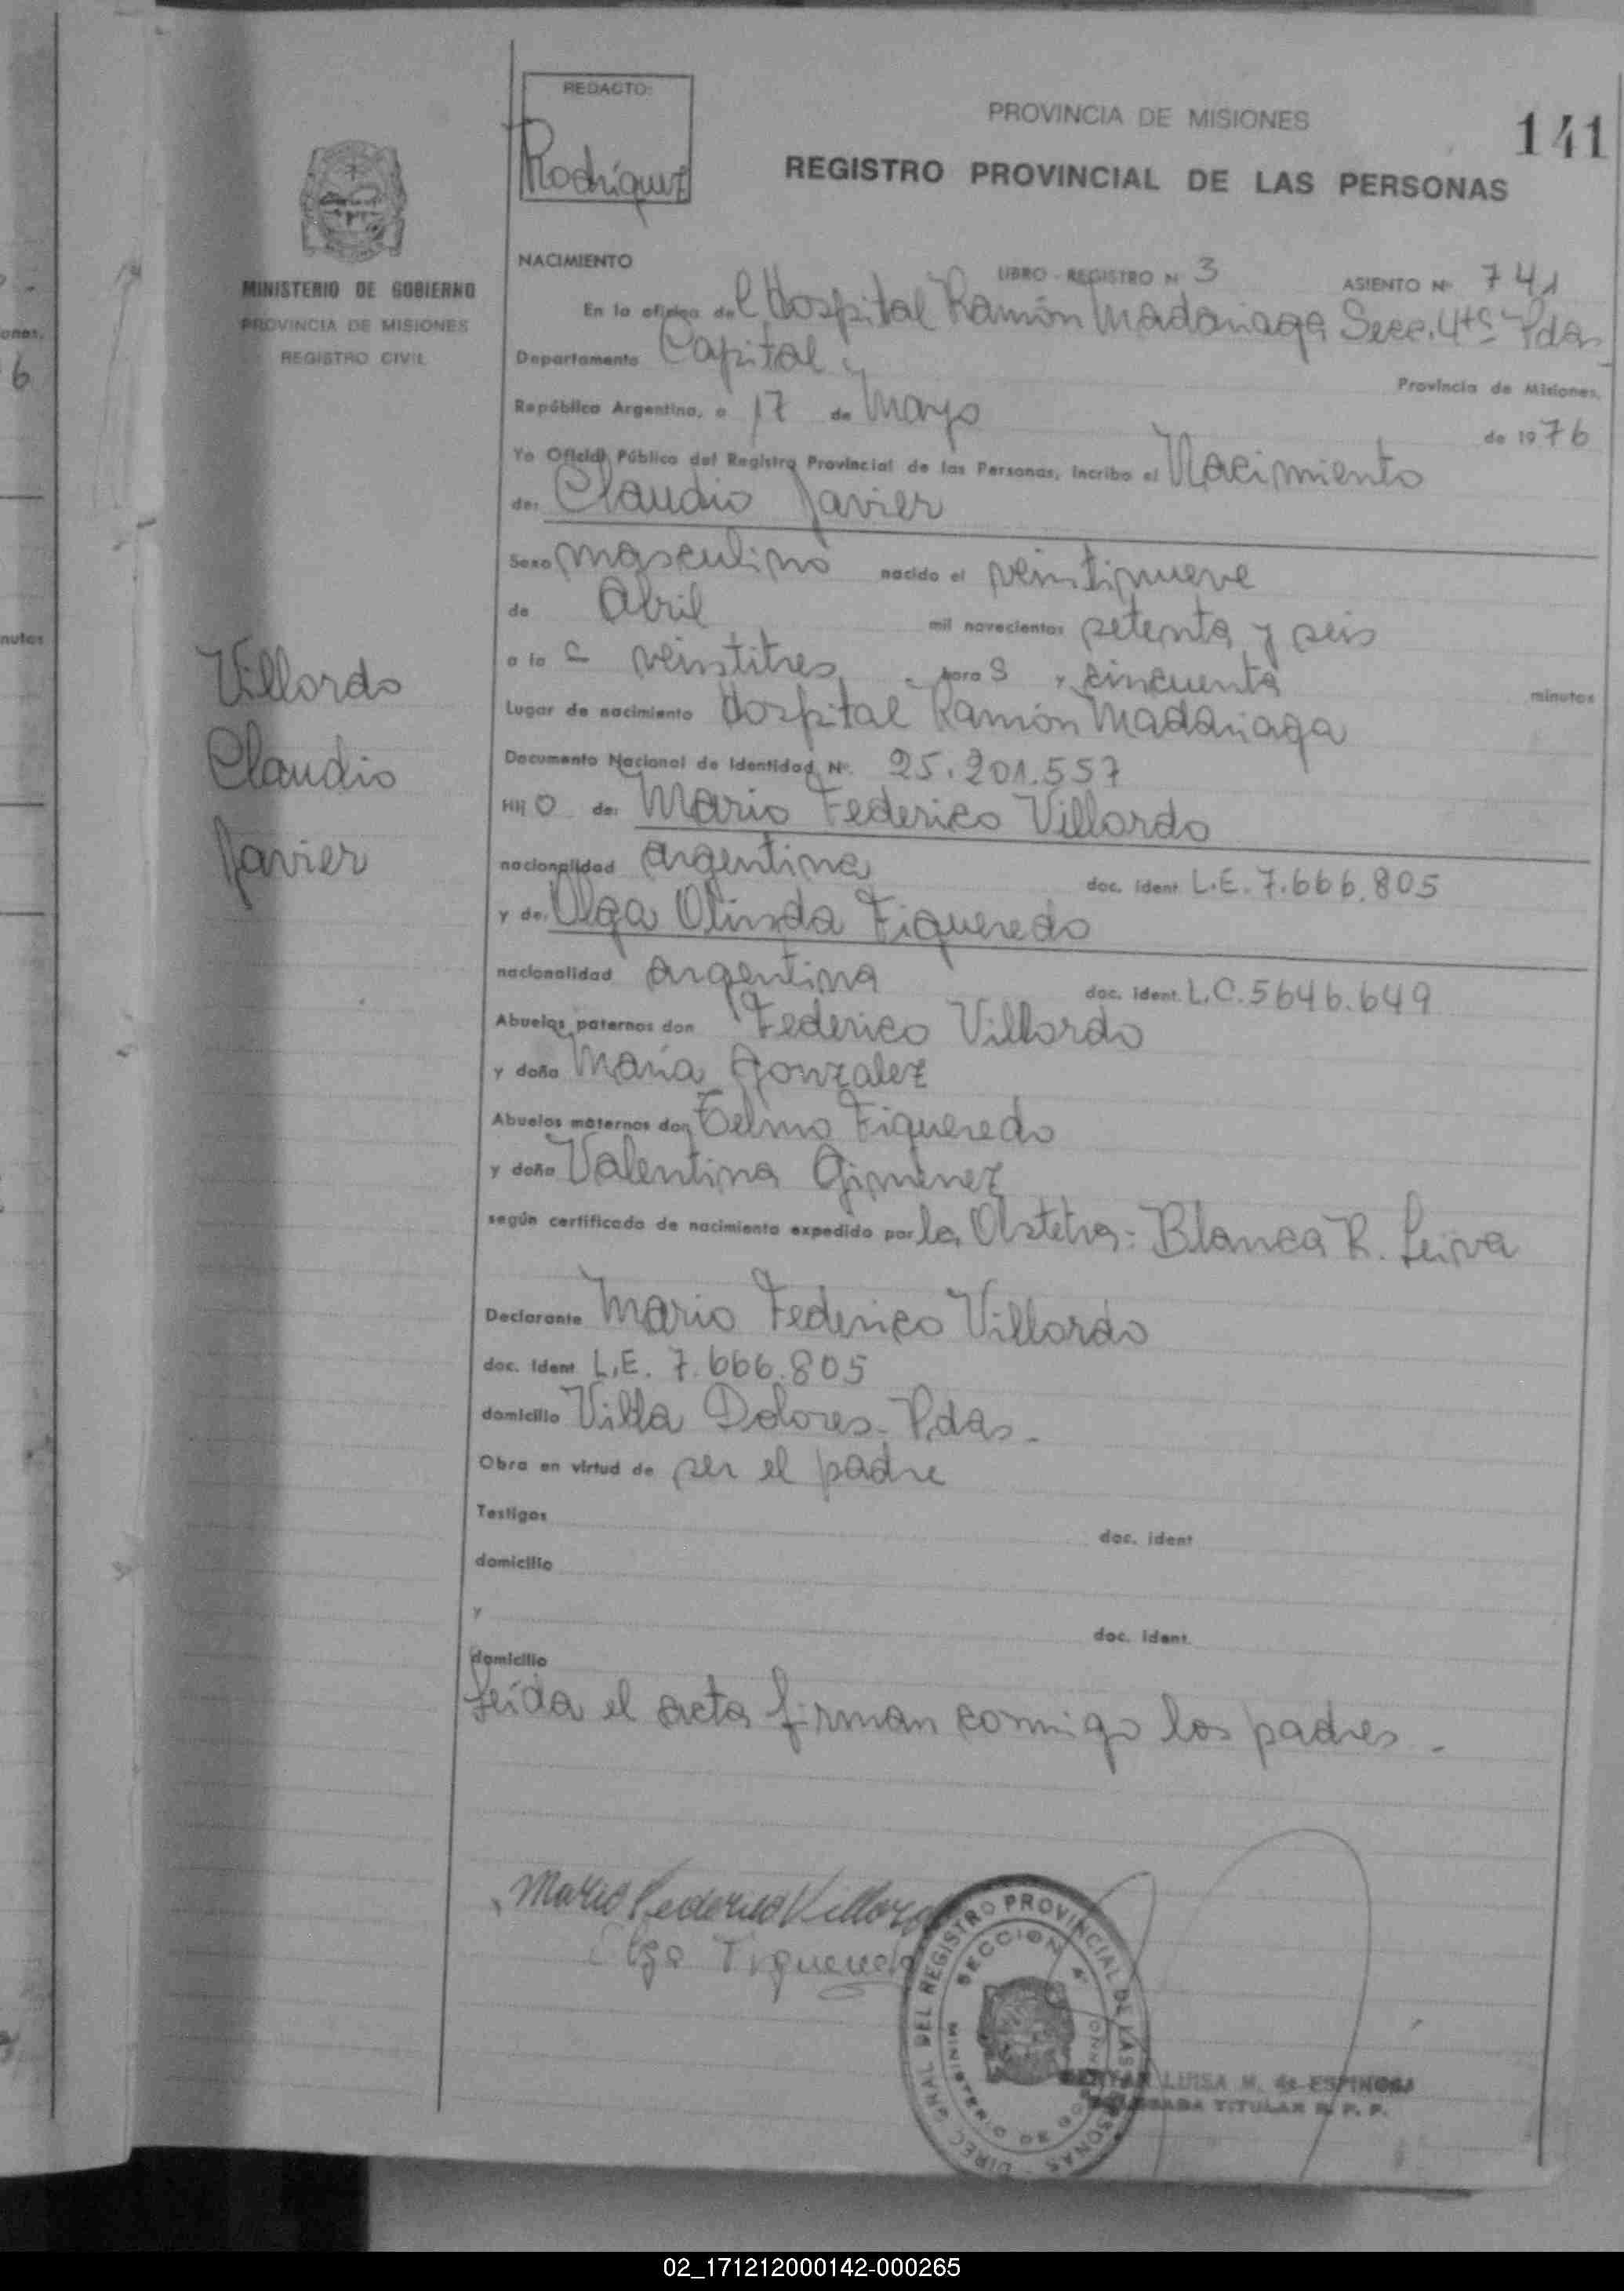 REDACTO:
Rodríguez
PROVINCIA DE MISIONES
141
REGISTRO PROVINCIAL DE LAS PERSONAS
MINISTERIO DE GOBIERNO
PROVINCIA DE MISIONES
REGISTRO CIVIL
NACIMIENTO
LIBRO - REGISTRO Nº 3 ASIENTO Nº 741
En la oficina del Hospital Ramón Madariaga Secc. 4ta Pdas
Departamento Capital
Provincia de Misiones,
República Argentina, a 17 de Mayo de 1976
Yo Oficial Público del Registro Provincial de las Personas, incribo el Nacimiento
de: Claudio Javier
Sexo masculino nacido el veintinueve
de Abril mil novecientos setenta y seis
a la s veintitres hora s y cincuenta minutos
Lugar de nacimiento Hospital Ramón Madariaga
Documento Nacional de Identidad Nº 25.201.557
Hij o de: Mario Federico Villordo
nacionalidad argentina doc. ident L.E. 7.666.805
y de: Olga Olinda Figueredo
nacionalidad argentina doc. ident. L.C. 5646.649
Abuelos paternos don Federico Villordo
y doña María Gonzalez
Abuelos maternos don Telmo Figueredo
y doña Valentina Gimenez
según certificado de nacimiento expedido por la Obstetra: Blanca R. Leiva
Declarante Mario Federico Villordo
doc. ident L.E. 7.666.805
domicilio Villa Dolores - Pdas -
Obra en virtud de ser el padre
Testigos doc. ident
domicilio
y doc. ident.
domicilio
Leída el acta firman conmigo los padres -
Villordo
Claudio
Javier
Mario Federico Villordo
Olga Figueredo
DIREC. GRAL DEL REGISTRO PROVINCIAL DE LAS PERSONAS
SECCION 4ª
MINISTERIO DE GOBIERNO
LUISA M. de ESPINOSA
DELEGADA TITULAR R. P. P.
02_171212000142-000265